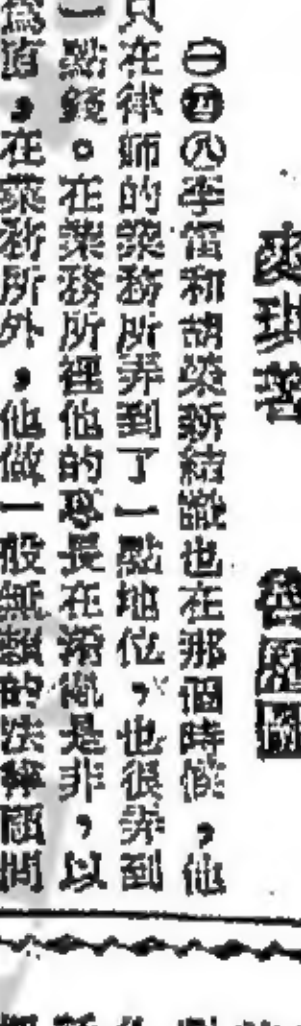 ㊀㊃㊇李雷和胡榮新結識也在那個時候，他
只在律師的業務所弄到了一點地位，也很弄到
一點錢。在業務所裡他的專長在淆亂是非，以
爲直，在業務所外，他做一般無賴的法律顧問